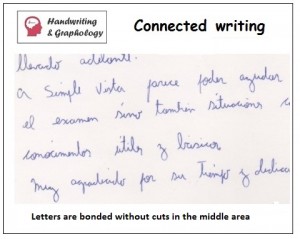 Handwriting
& Graphology
Connected writing
llevado adelante.
a simple vista parece poder ayudar
el examen sino tambien situacions
conocimentos utiles y basicos
Muy agradecido por su tiempo y dedica
Letters are bonded without cuts in the middle area